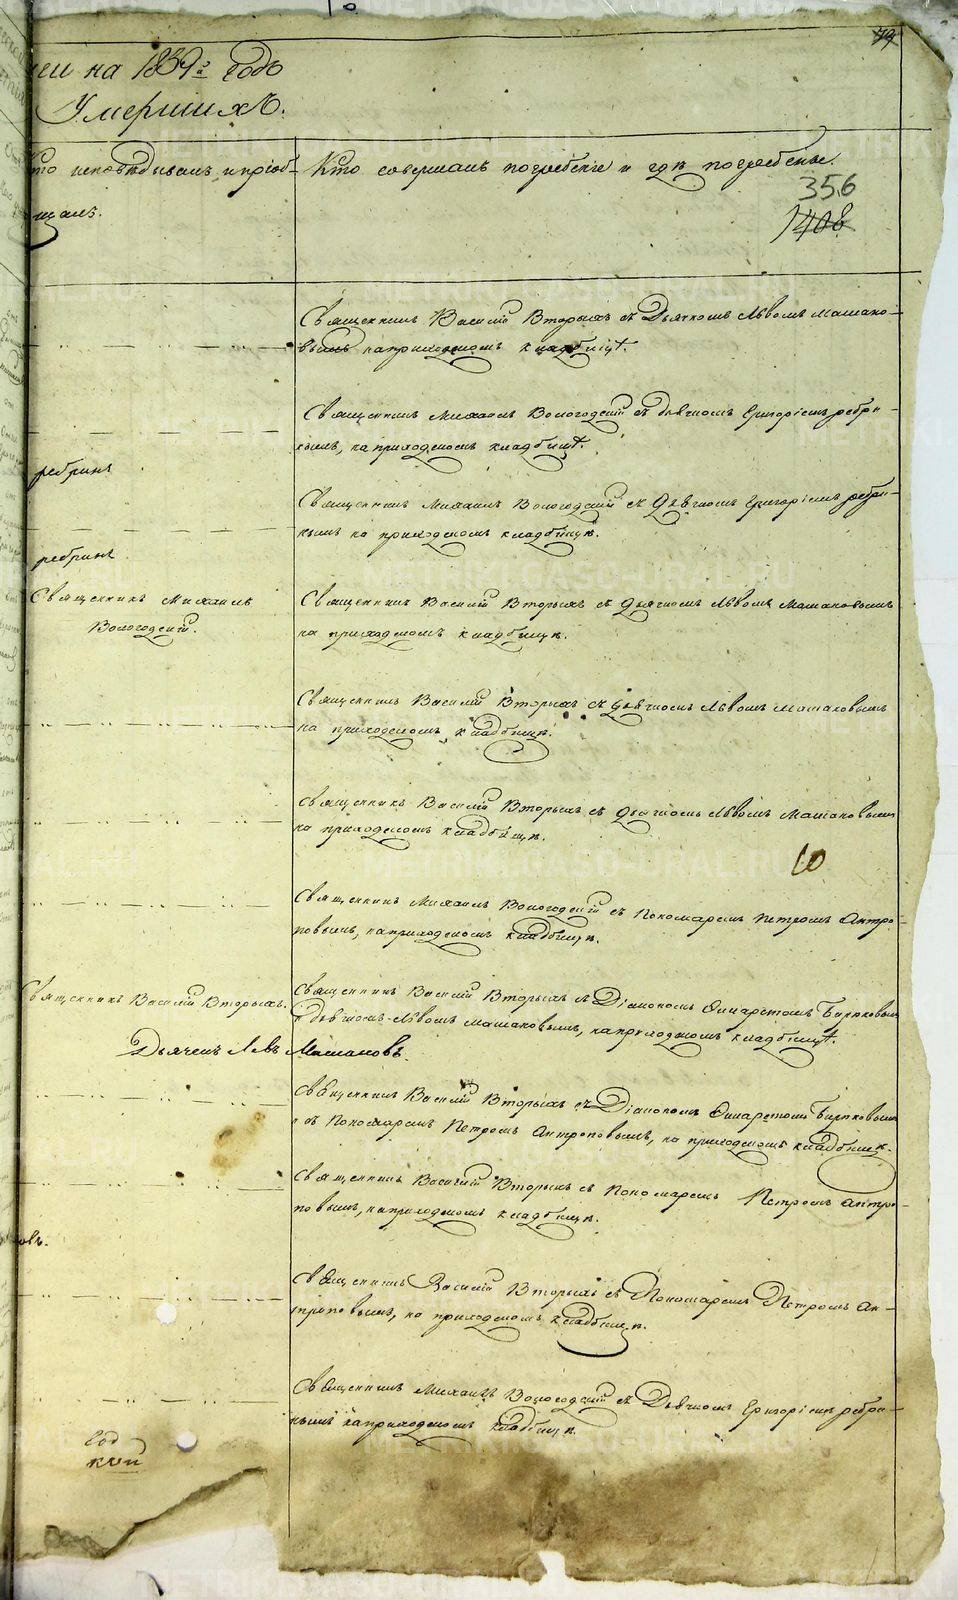 на 1839<sup>го</sup> годъ
Умершихъ.
Кто исповѣдывалъ и пріоб-
щалъ.
Кто совершалъ погребеніе и гдѣ погребены.
356
1408
Священникъ Василій Вторыхъ съ Дьячкомъ Львомъ Машано-
вымъ на приходскомъ кладбищѣ.
Священникъ Михаилъ Вологодскій съ дьячкомъ Григоріемъ ребри-
нымъ, на приходскомъ кладбищѣ.
ребринъ
Священникъ Михаилъ Вологодскій съ Дьячкомъ Григоріемъ ребри-
нымъ на приходскомъ кладбищѣ.
ребринъ
Священникъ Михаилъ
Вологодскій.
Священникъ Василій Вторыхъ съ дьячкомъ Львомъ Машановымъ
на приходскомъ кладбищѣ.
Священникъ Василій Вторыхъ съ дьячкомъ Львомъ Машановымъ
на приходскомъ кладбищѣ.
Священникъ Василій Вторыхъ съ дьячкомъ Львомъ Машановымъ
на приходскомъ кладбищѣ.
10
Священникъ Михаилъ Вологодскій съ Пономаремъ Петромъ Антро-
повымъ, на приходскомъ кладбищѣ.
Священникъ Василій Вторыхъ.
Дьячекъ Левъ Машановъ.
Священникъ Василій Вторыхъ съ Діакономъ Филаретомъ Бирюковымъ
и дьячкомъ Львомъ Машановымъ, на приходскомъ кладбищѣ.
Священникъ Василій Вторыхъ съ Діакономъ Филаретомъ Бирюковымъ
съ Пономаремъ Петромъ Антроповымъ, на приходскомъ кладбищѣ.
Священникъ Василій Вторыхъ съ Пономаремъ Петромъ Антро-
повымъ, на приходскомъ кладбищѣ.
овъ.
Священникъ Василій Вторыхъ съ Пономаремъ Петромъ Ан-
троповымъ, на приходскомъ кладбищѣ.
Священникъ Михаилъ Вологодскій съ Дьячкомъ Григоріемъ ребри-
нымъ на приходскомъ кладбищѣ.